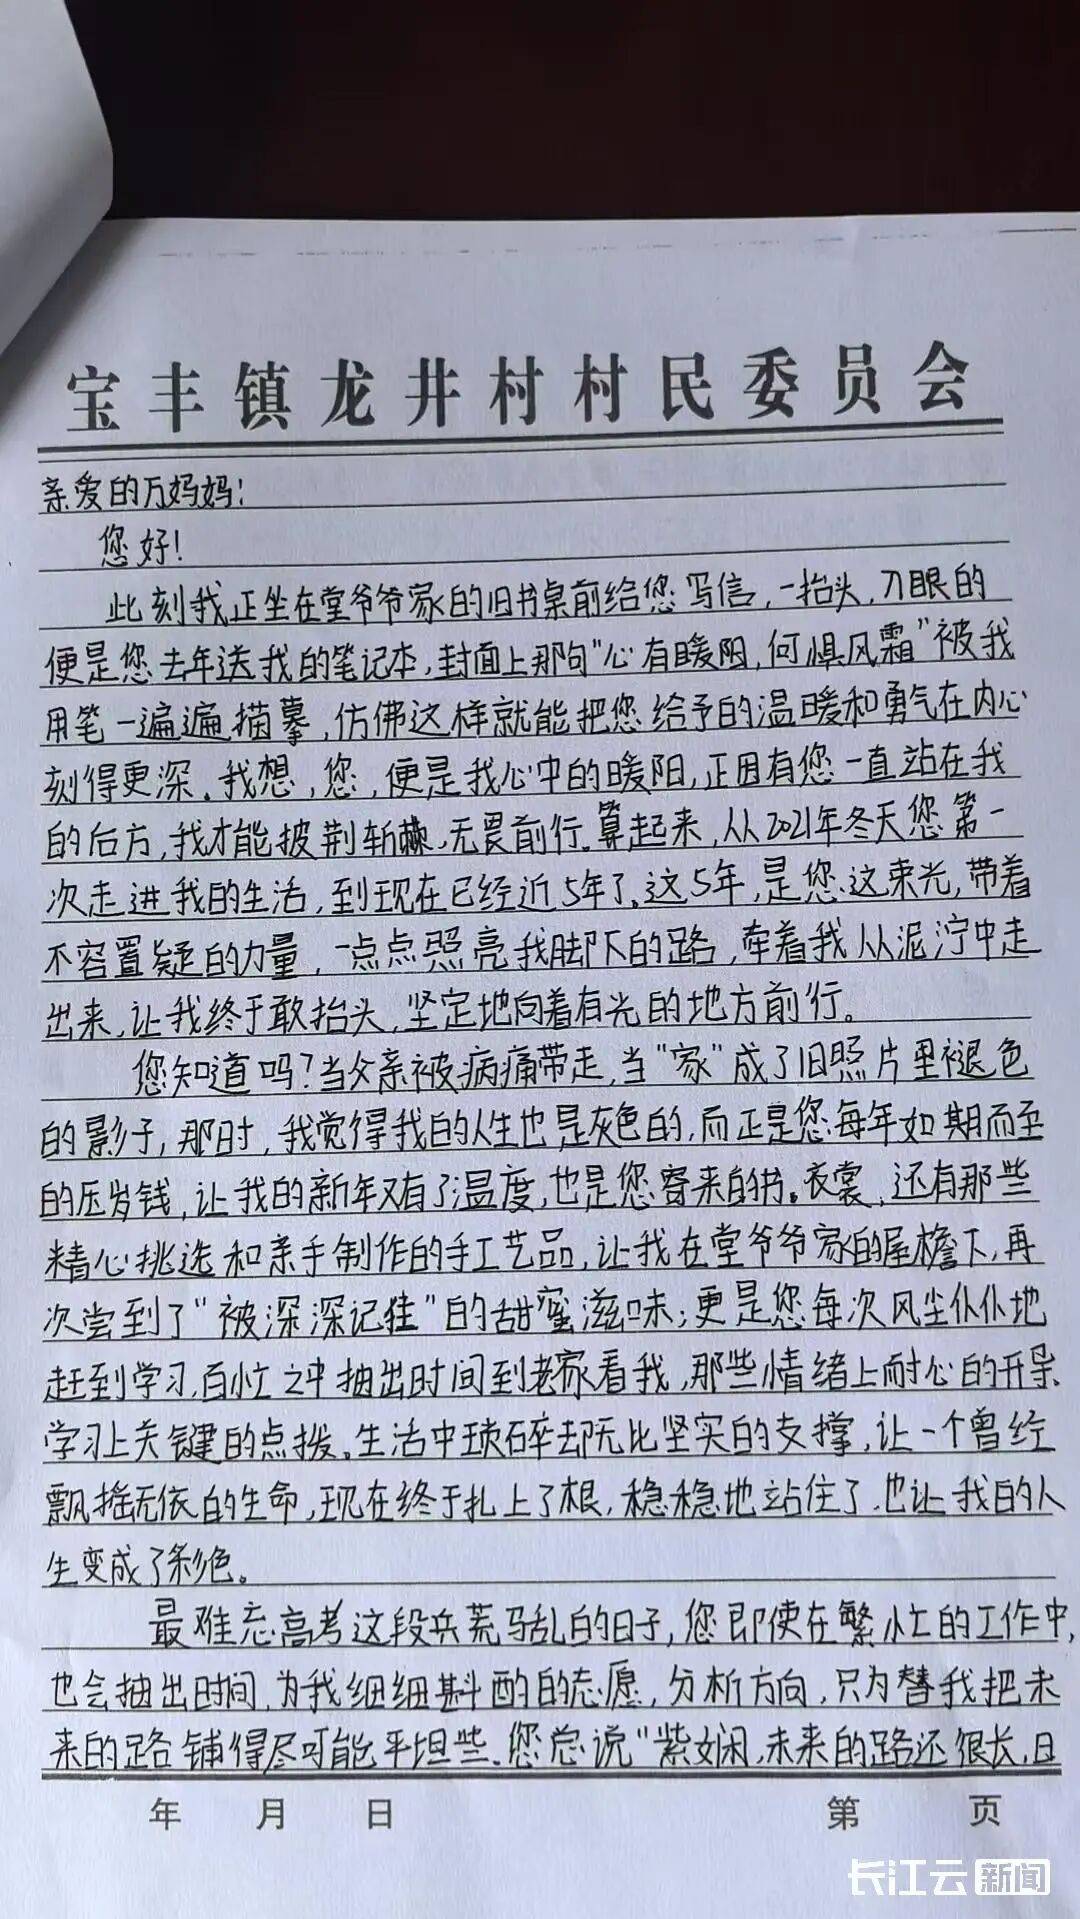 宝丰镇龙井村村民委员会
亲爱的万妈妈!
您好!
此刻我正坐在堂爷爷家的旧书桌前给您写信,一抬头,刀眼的
便是您去年送我的笔记本,封面上那句“心有暖阳,何惧风霜”被我
用笔一遍遍描摹,仿佛这样就能把您给予的温暖和勇气在内心
刻得更深。我想,您,便是我心中的暖阳,正因有您一直站在我
的后方,我才能披荆斩棘,无畏前行。算起来,从2021年冬天您第一
次走进我的生活,到现在已经近5年了。这5年,是您这束光,带着
不容置疑的力量,一点点照亮我脚下的路,牵着我从泥泞中走
出来,让我终于敢抬头,坚定地向着有光的地方前行。
您知道吗?当父亲被病痛带走,当“家”成了旧照片里褪色
的影子,那时,我觉得我的人生也是灰色的,而正是您每年如期而至
的压岁钱,让我的新年又有了温度,也是您寄来的书。衣裳,还有那些
精心挑选和亲手制作的手工艺品,让我在堂爷爷家的屋檐下,再
次尝到了“被深深记挂”的甜蜜滋味;更是您每次风尘仆仆地
赶到学习,百忙之中抽出时间到老家看我,那些情绪上耐心的开导
学习上关键的点拨。生活中琐碎却无比坚实的支撑,让一个曾经
飘摇无依的生命,现在终于扎上了根,稳稳地站住了,也让我的人
生变成了彩色。
最难忘高考这段兵荒马乱的日子,您即使在繁忙的工作中,
也会抽出时间,为我细细斟酌的志愿,分析方向,只为替我把未
来的路铺得尽可能平坦些。您总说“紫娴,未来的路还很长,日
年 月 日 第 页
长江云新闻